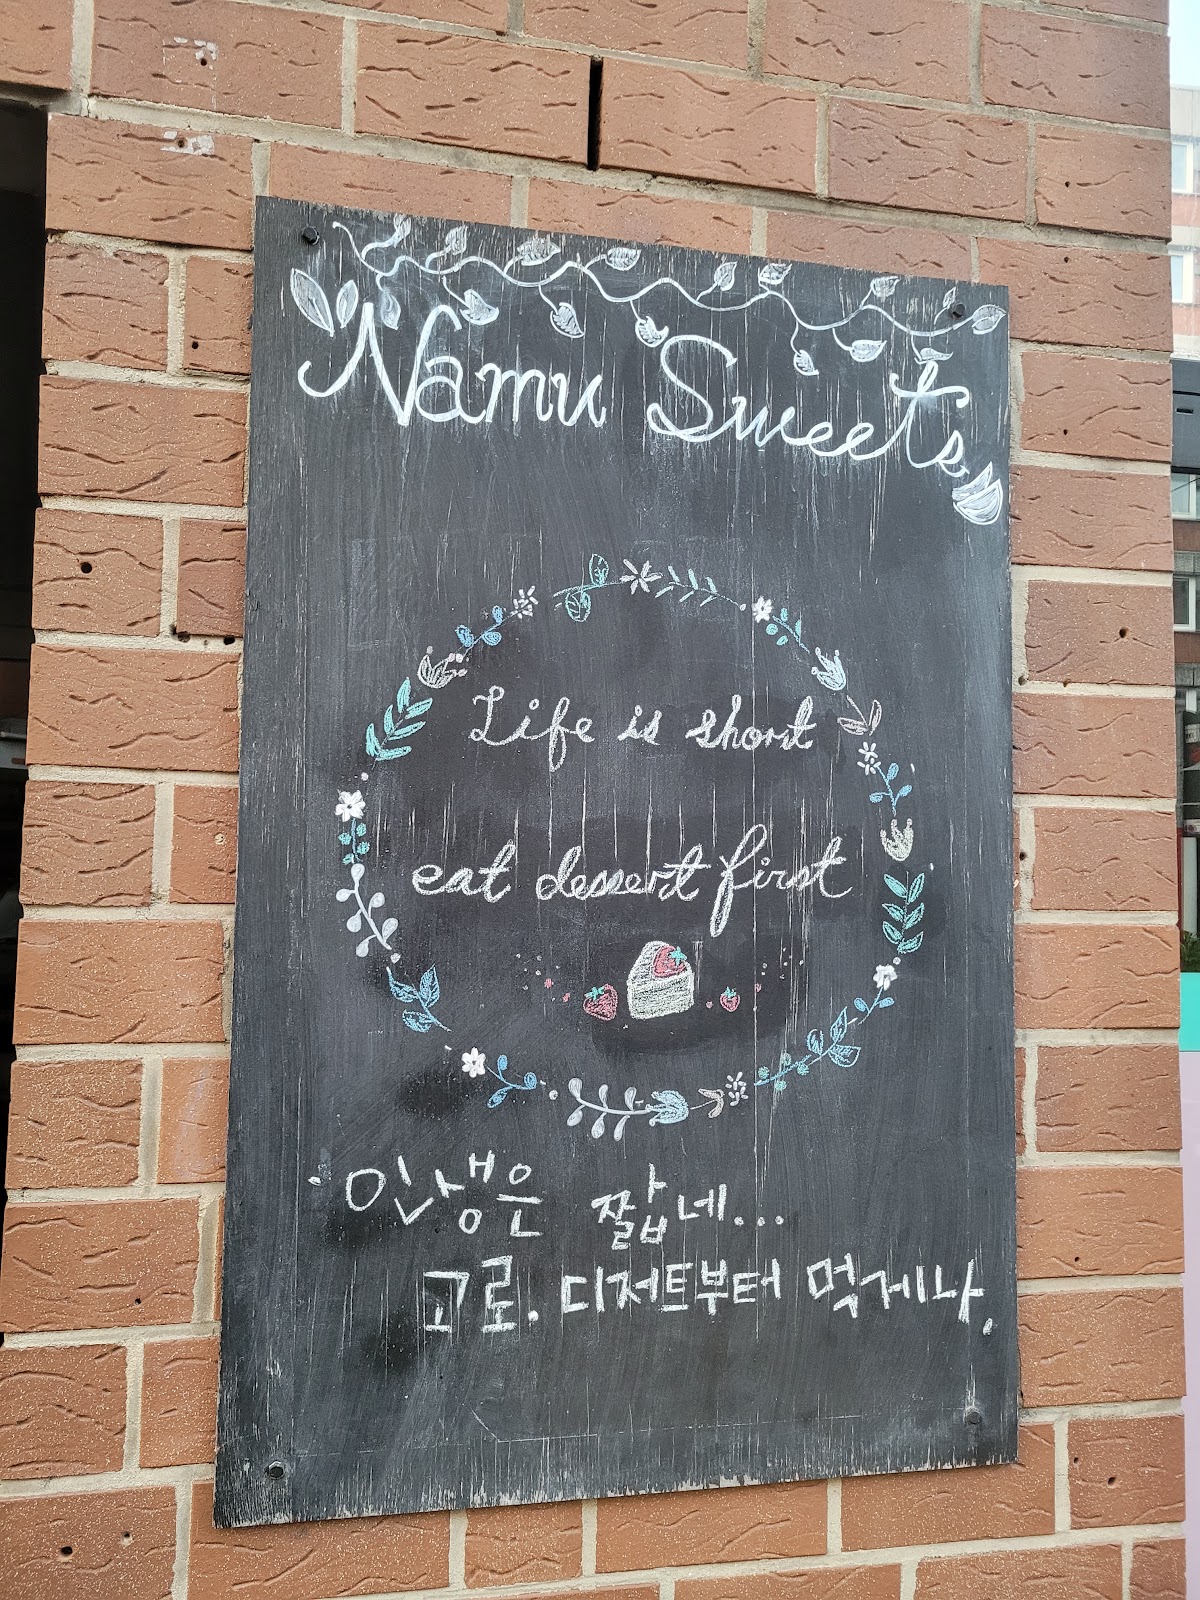 Namu Sweets
Life is short
eat dessert first
인생은 짧네...
고로. 디저트부터 먹게나.